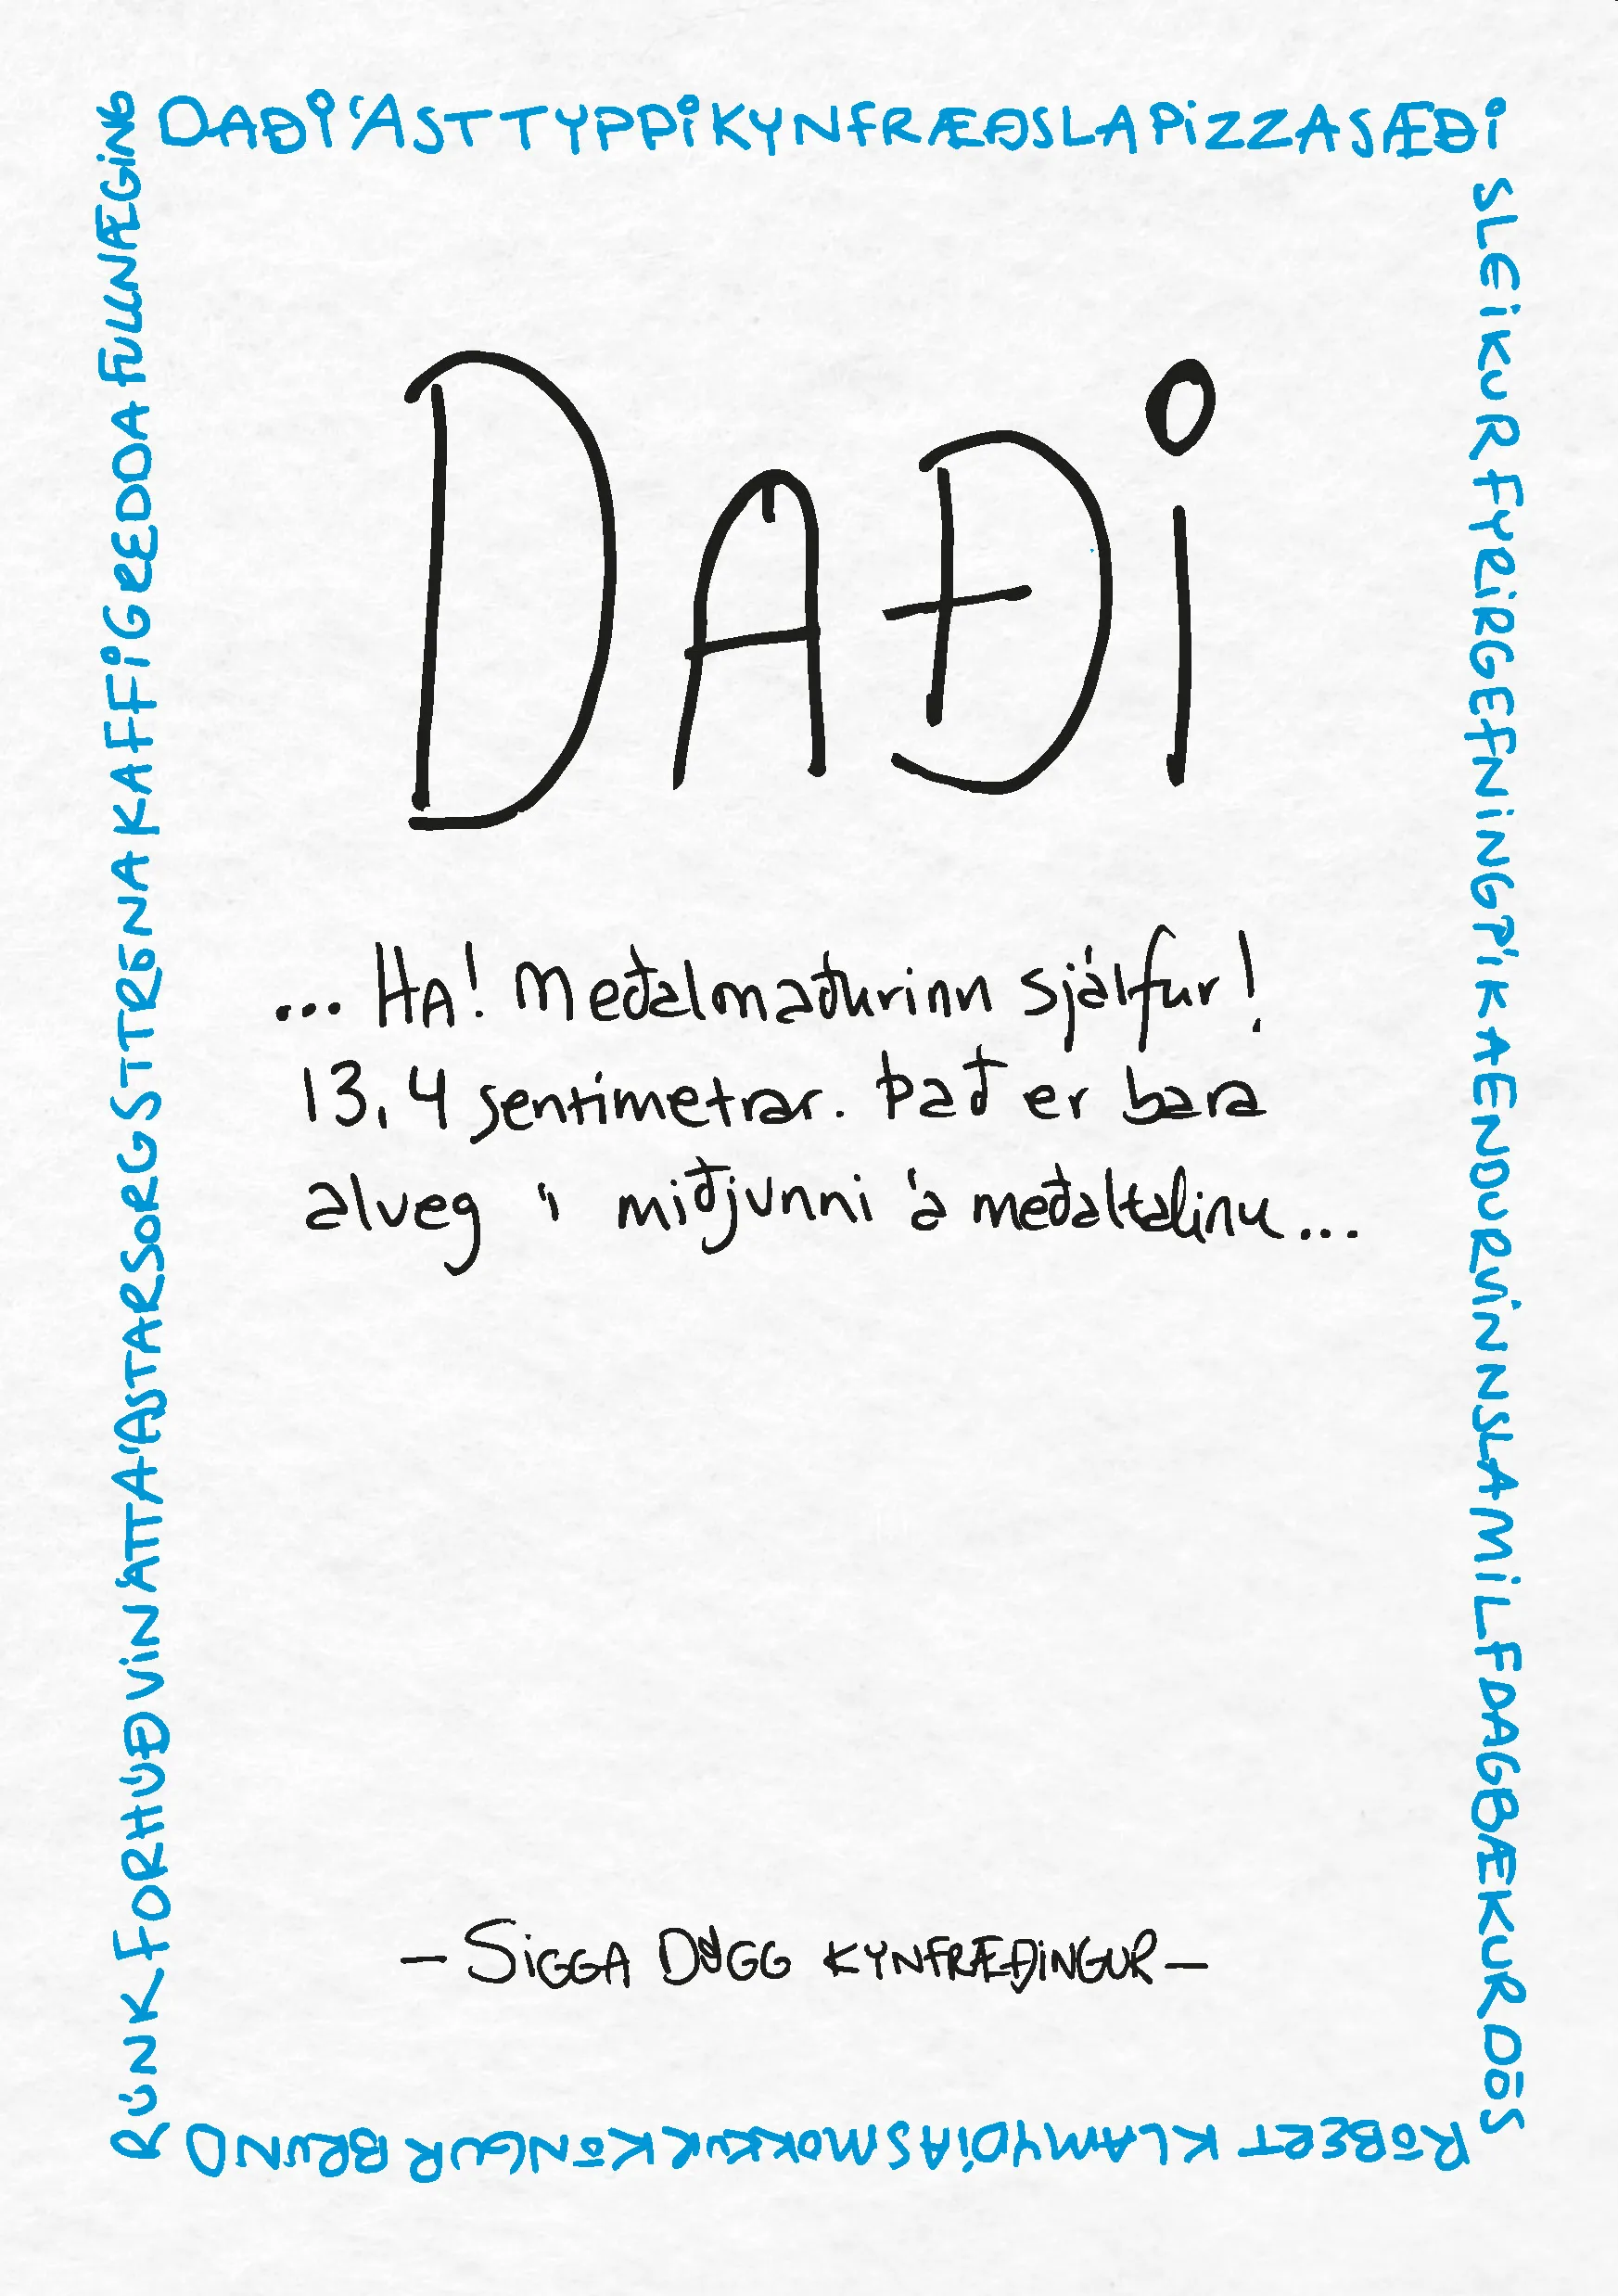 DAÐIÁSTTYPPIKYNFRÆÐSLAPIZZASÆÐI
SLEIKURFYRIRGEFNINGPÍKAENDURVINNSLAMILFDAGBÆKURDÖS
RÓBERT KLAMYDÍASMOKKURKÓNGUR BRUND
RÚNKFORHÚÐVINÁTTAÁSTARSORGSTTRGNAKAFFIGREDDAFULLNÆGING
DAÐI
... HA! Meðalmaðurinn sjálfur!
13,4 sentimetrar. Það er bara
alveg í miðjunni á meðaltalinu...
– SIGGA DÖGG KYNFRÆÐINGUR –